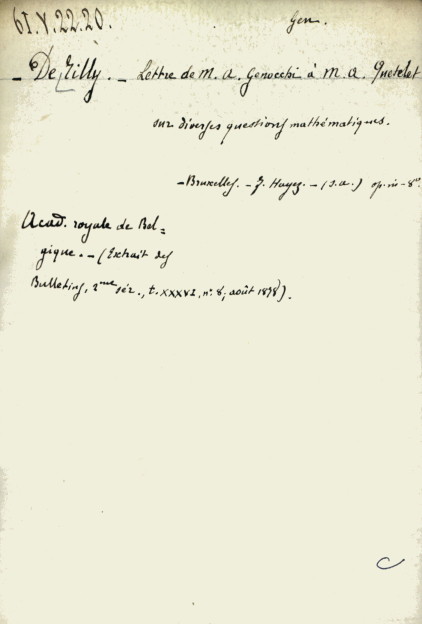 61.V.22.20.
Gen.
- De Tilly. - Lettre de M. A. Genocchi à M. A. Quetelet
sur diverses questions mathématiques.
- Bruxelles. - F. Hayez. - (s.a.) op. in-8°.
Acad. royale de Bel=
gique. - (Extrait des
Bulletins, 2me sér., t. XXXVI, n.° 8; août 1878).
C